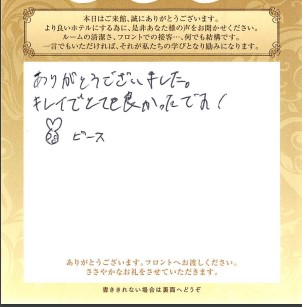 本日はご来館、誠にありがとうございます。
より良いホテルにする為に、是非あなた様の声をお聞かせください。
ルームの清潔さ、フロントでの接客…、何でも結構です。
一言でもいただければ、それが私たちの学びとなり励みになります。
ありがとうございました。
キレイでとても良かったです!
ピース
ありがとうございます。フロントへお渡しください。
ささやかなお礼をさせていただきます。
書ききれない場合は裏面へどうぞ